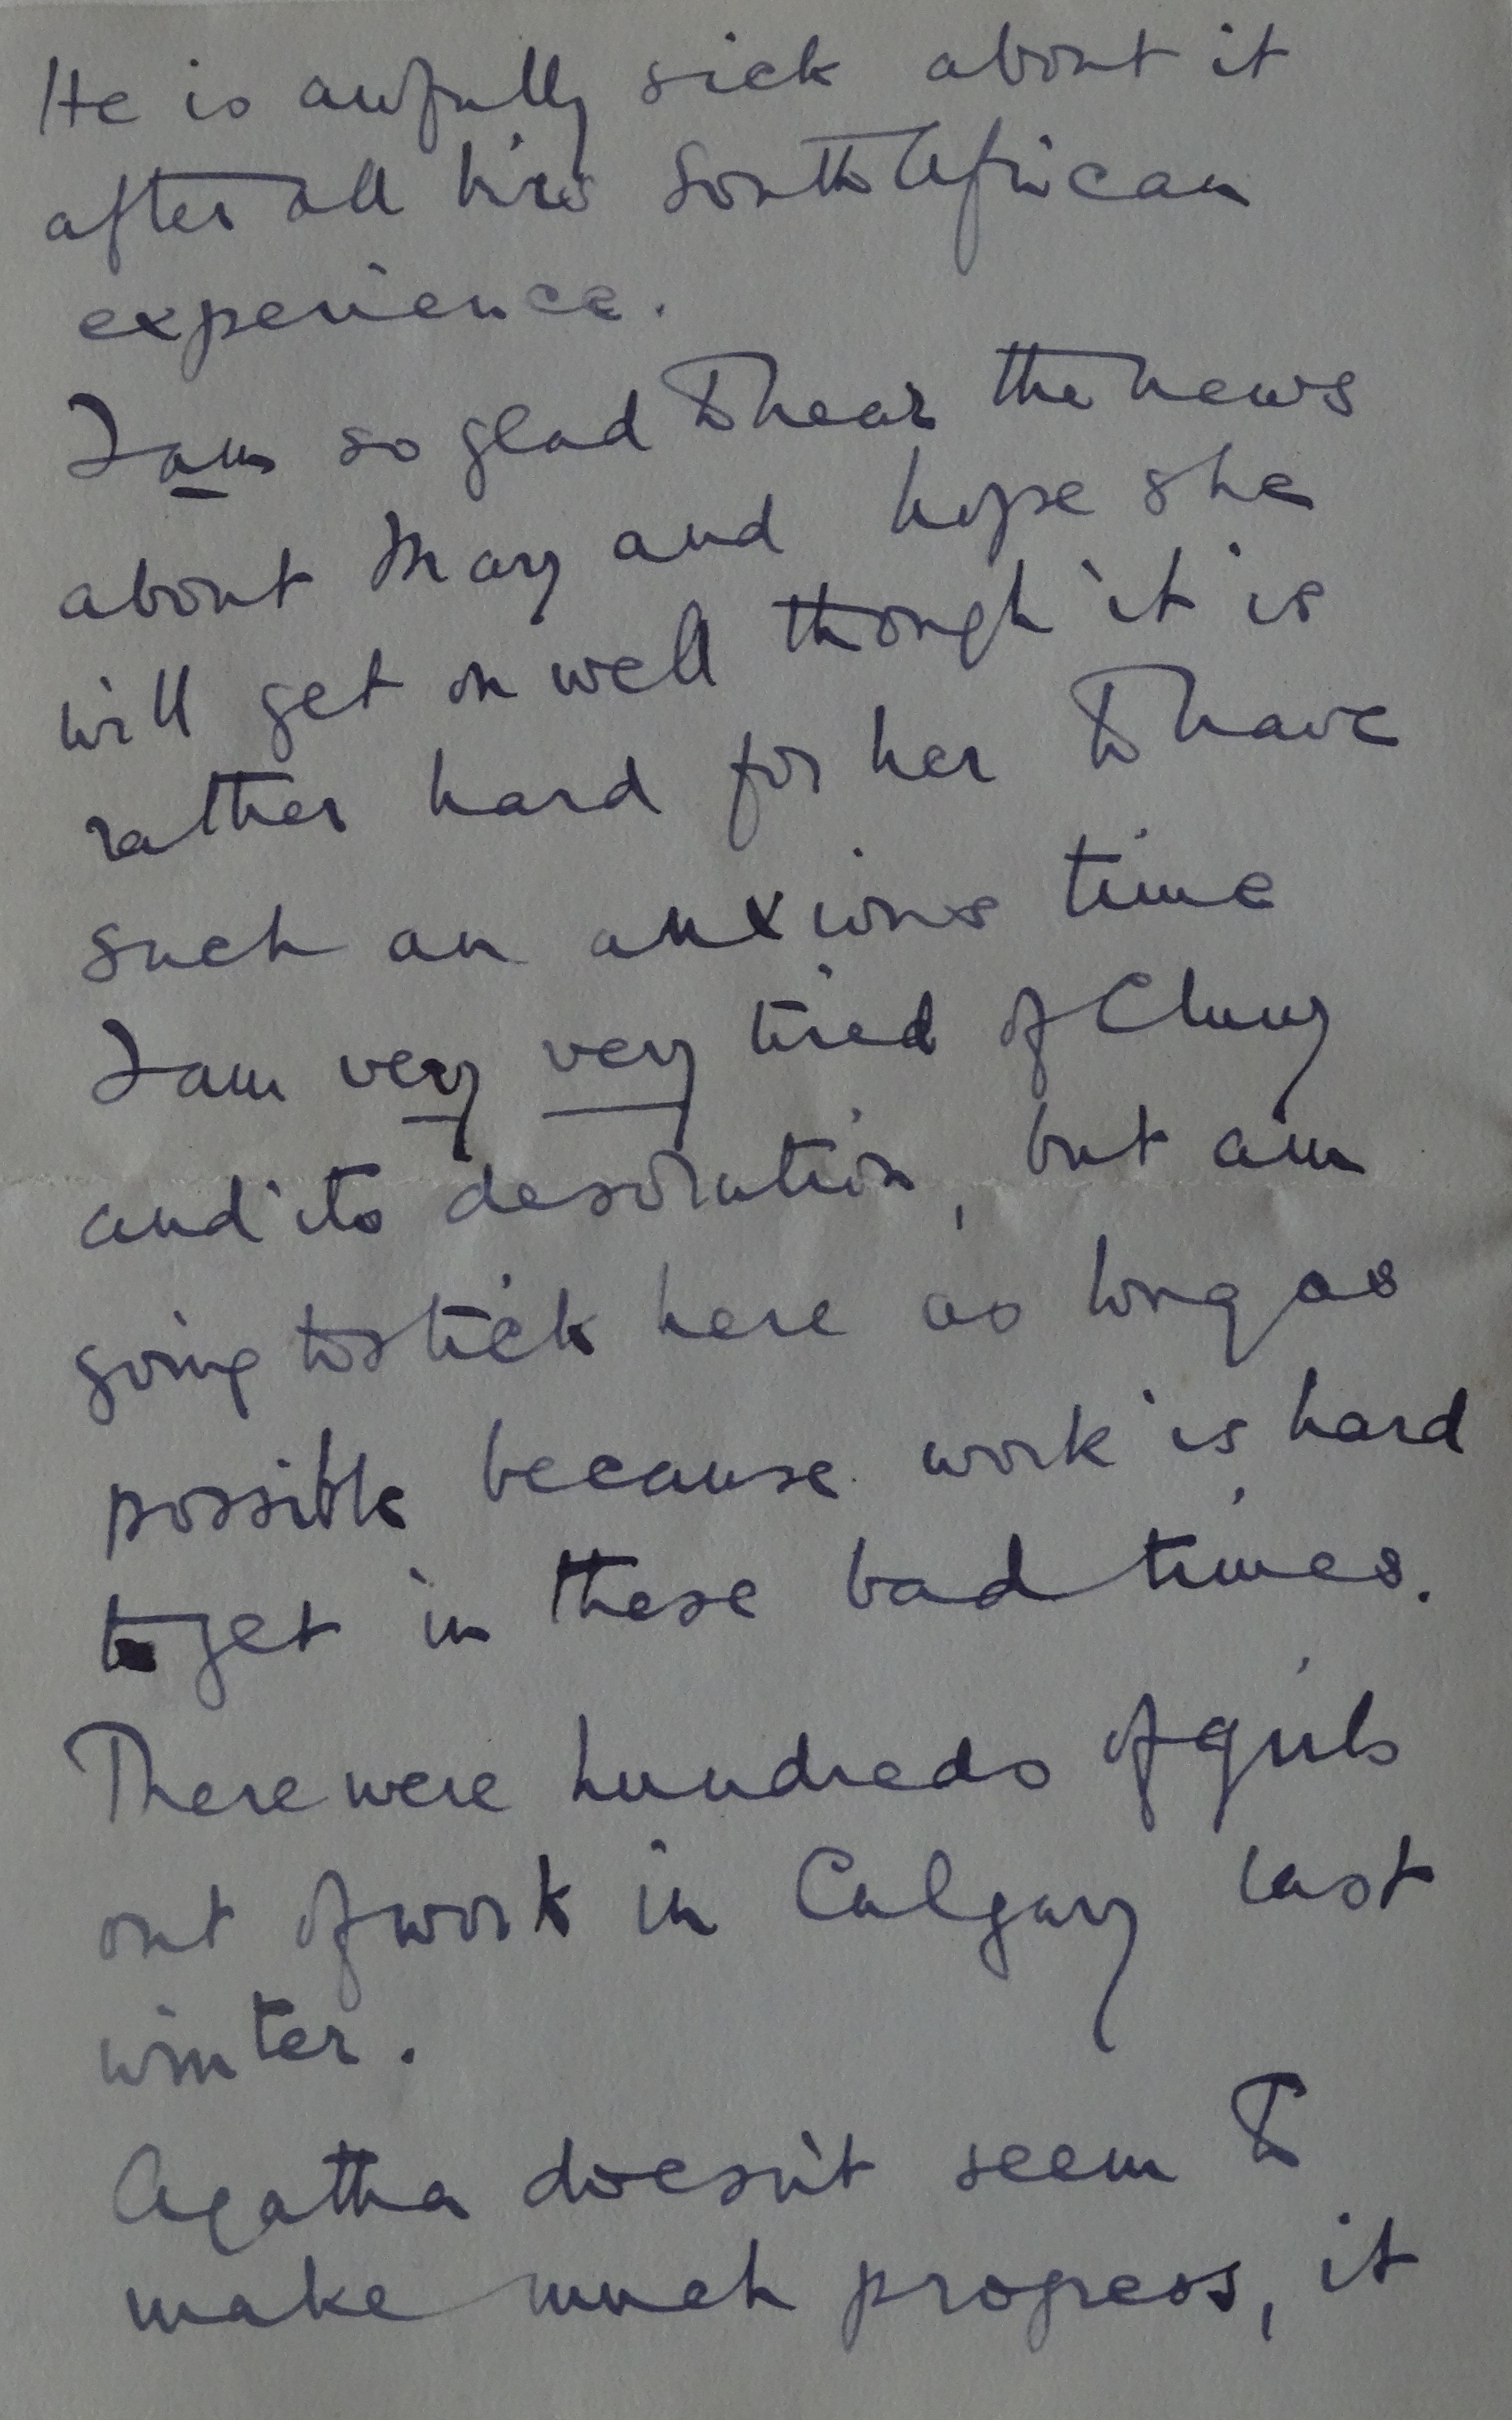 He is awfully sick about it
after all his South African
experience.
I am so glad to hear the news
about May and hope she
will get on well though it is
rather hard for her to have
such an anxious time
I am very very tired of Cluny
and its desolation, but am
going to stick here as long as
possible because work is hard
to get in these bad times.
There were hundreds of girls
out of work in Calgary last
winter.
Agatha doesn't seem to
make much progress, it